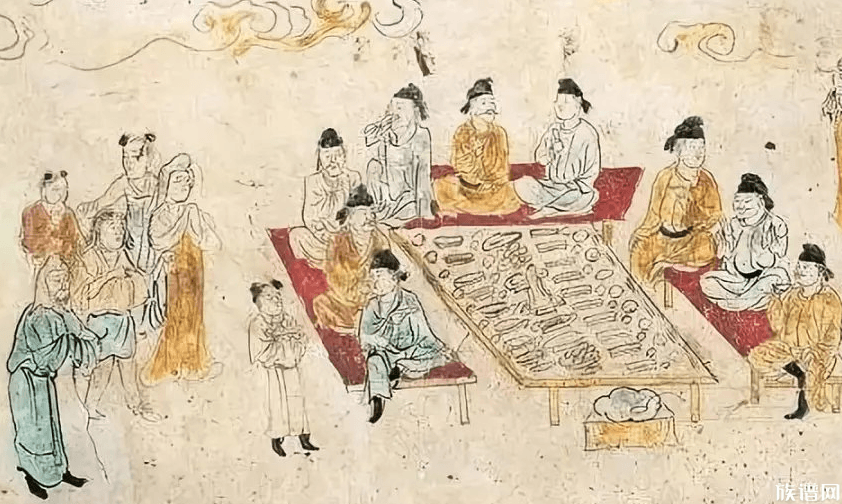 族谱网